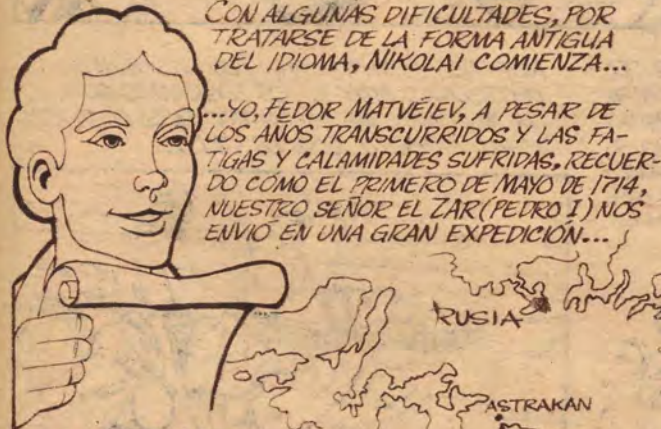 CON ALGUNAS DIFICULTADES, POR
TRATARSE DE LA FORMA ANTIGUA
DEL IDIOMA, NIKOLAI COMIENZA...
...YO, FEDOR MATVÉIEV, A PESAR DE
LOS AÑOS TRANSCURRIDOS Y LAS FA-
TIGAS Y CALAMIDADES SUFRIDAS, RECUER-
DO CÓMO EL PRIMERO DE MAYO DE 1714,
NUESTRO SEÑOR EL ZAR (PEDRO I) NOS
ENVIÓ EN UNA GRAN EXPEDICIÓN...
RUSIA
ASTRAKAN